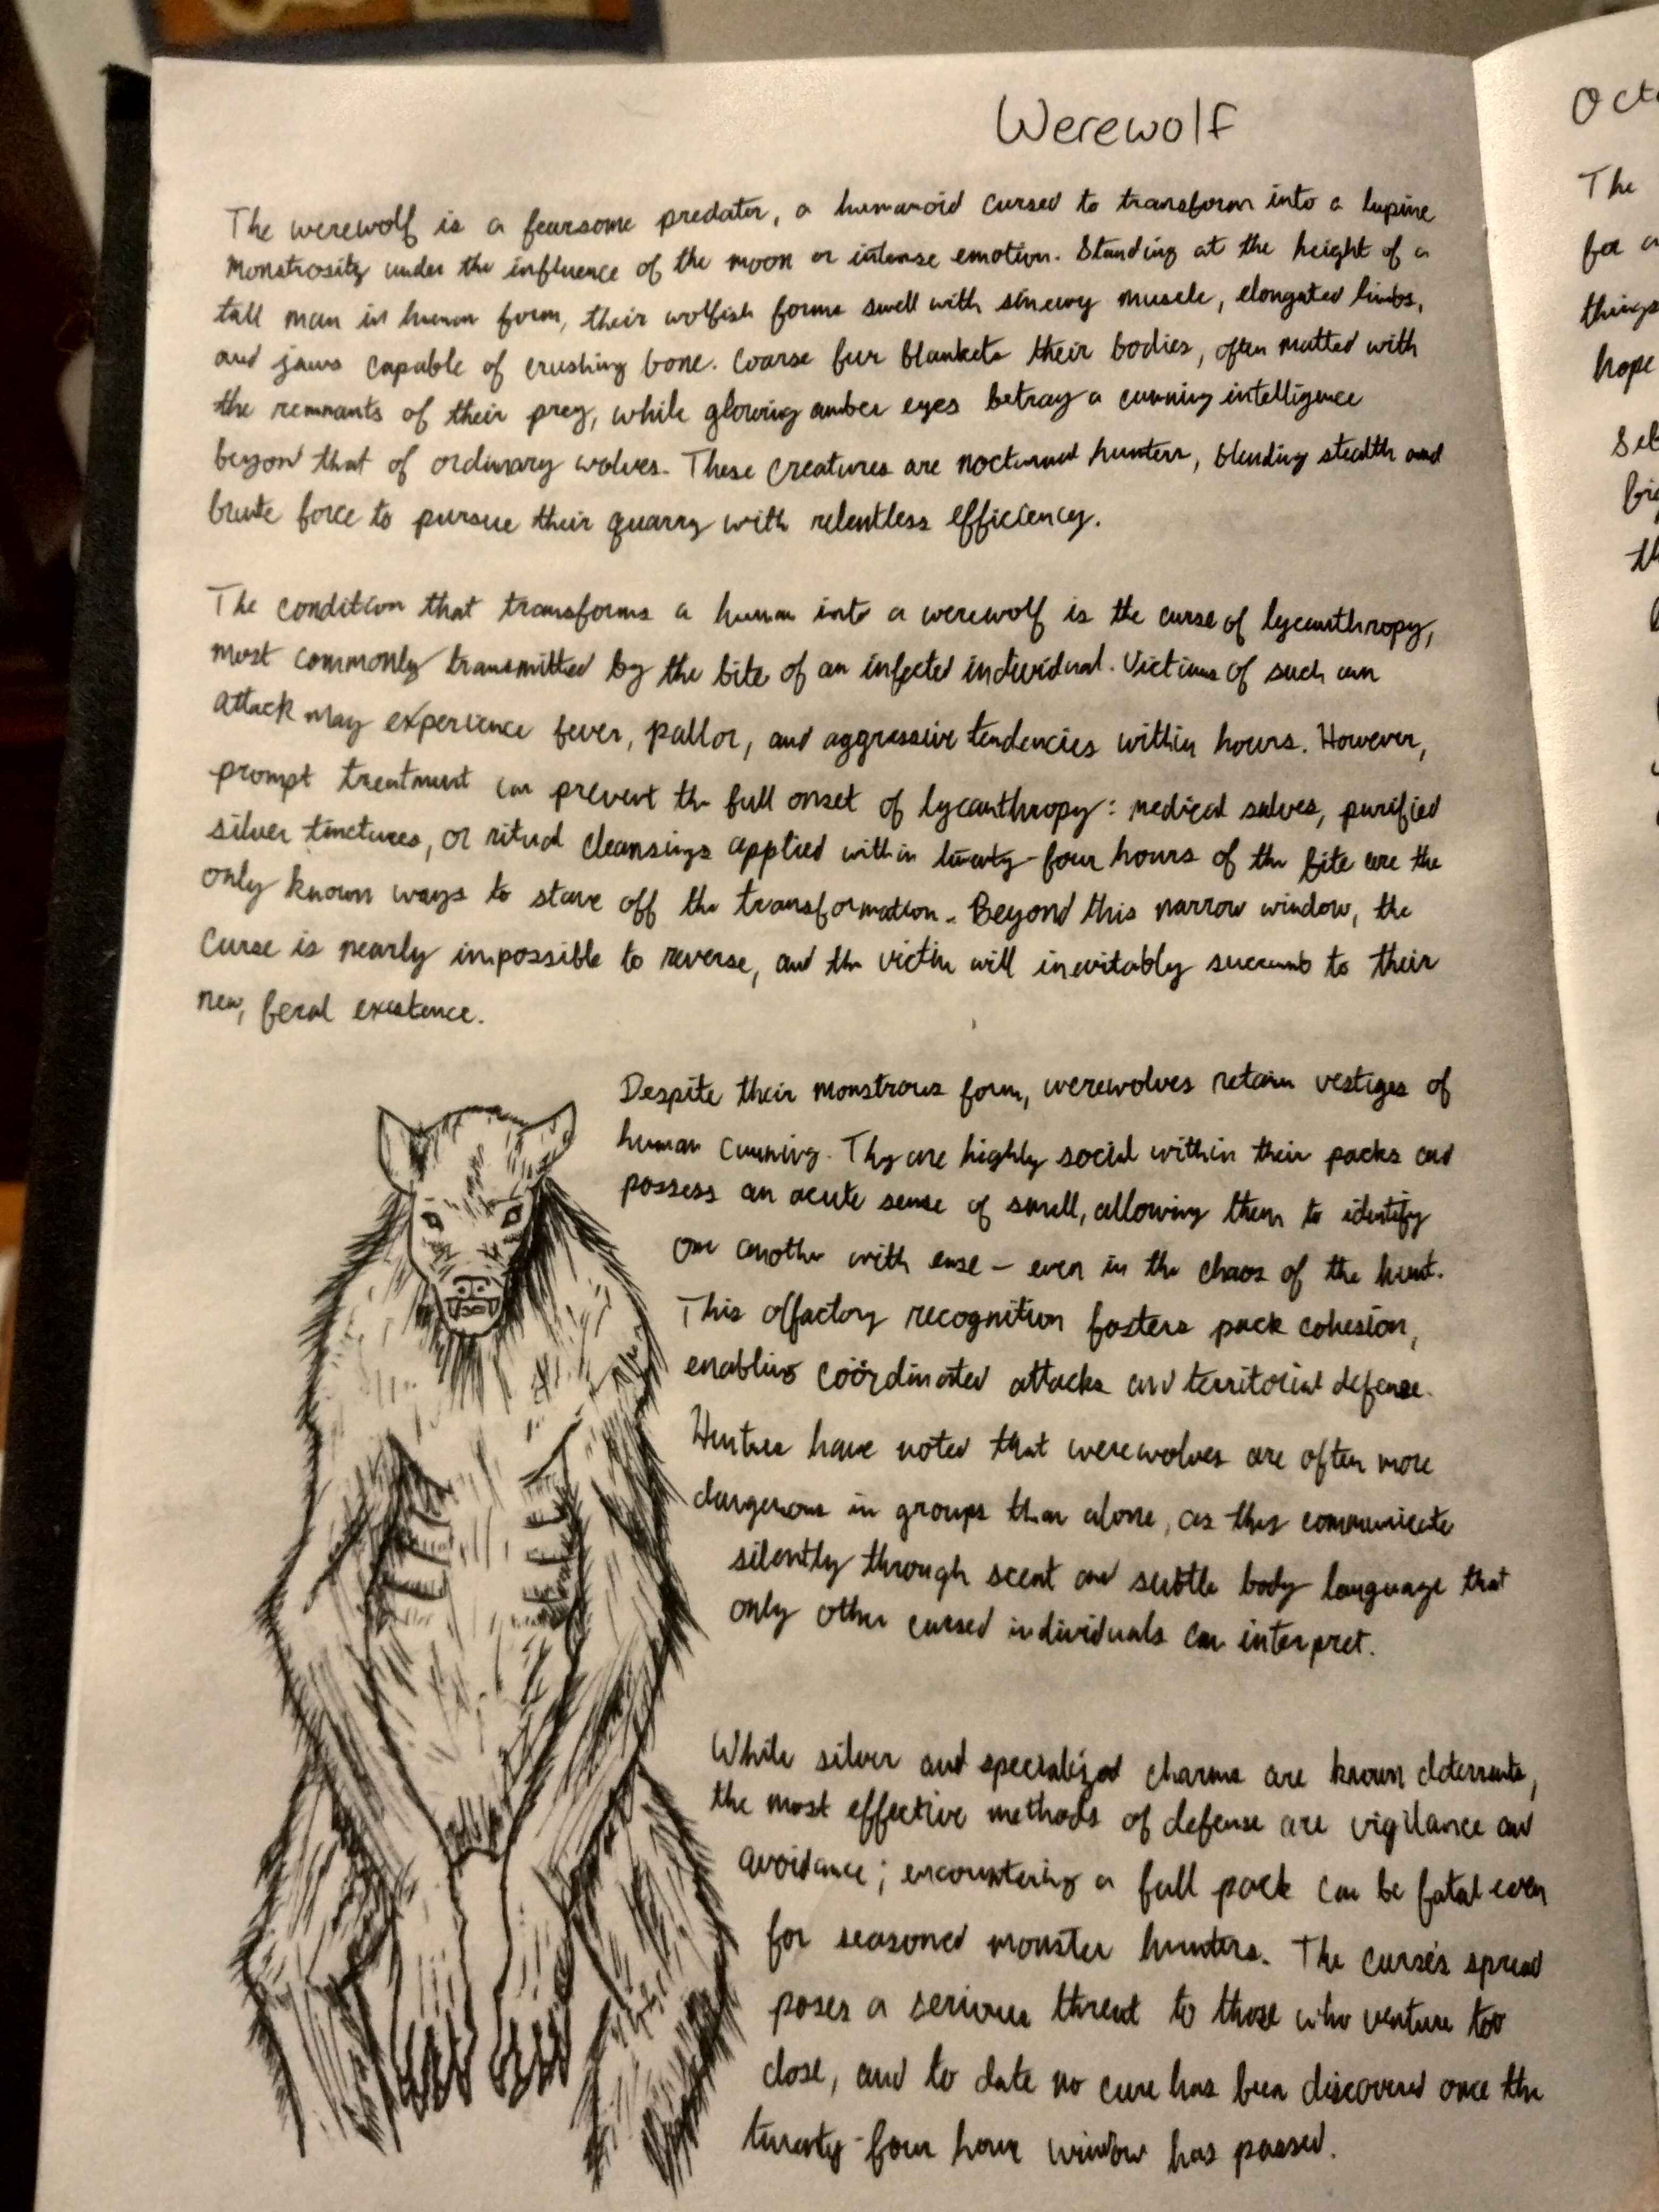 Werewolf
The werewolf is a fearsome predator, a humanoid cursed to transform into a lupine
monstrosity under the influence of the moon or intense emotion. Standing at the height of a
tall man in human form, their wolfish forms swell with sinewy muscle, elongated limbs,
and jaws capable of crushing bone. Coarse fur blankets their bodies, often matted with
the remnants of their prey, while glowing amber eyes betray a cunning intelligence
beyond that of ordinary wolves. These creatures are nocturnal hunters, blending stealth and
brute force to pursue their quarry with relentless efficiency.
The condition that transforms a human into a werewolf is the curse of lycanthropy,
most commonly transmitted by the bite of an infected individual. Victims of such an
attack may experience fever, pallor, and aggressive tendencies within hours. However,
prompt treatment can prevent the full onset of lycanthropy: medical salves, purified
silver tinctures, or ritual cleansings applied within twenty-four hours of the bite are the
only known ways to stave off the transformation. Beyond this narrow window, the
curse is nearly impossible to reverse, and the victim will inevitably succumb to their
new, feral existence.
Despite their monstrous form, werewolves retain vestiges of
human cunning. They are highly social within their packs and
possess an acute sense of smell, allowing them to identify
one another with ease – even in the chaos of the hunt.
This olfactory recognition fosters pack cohesion,
enabling coördinated attacks and territorial defense.
Hunters have noted that werewolves are often more
dangerous in groups than alone, as they communicate
silently through scent and subtle body language that
only other cursed individuals can interpret.
While silver and specialized charms are known deterrents,
the most effective methods of defense are vigilance and
avoidance; encountering a full pack can be fatal even
for seasoned monster hunters. The curse's spread
poses a serious threat to those who venture too
close, and to date no cure has been discovered once the
twenty-four hour window has passed.
The
things
hope